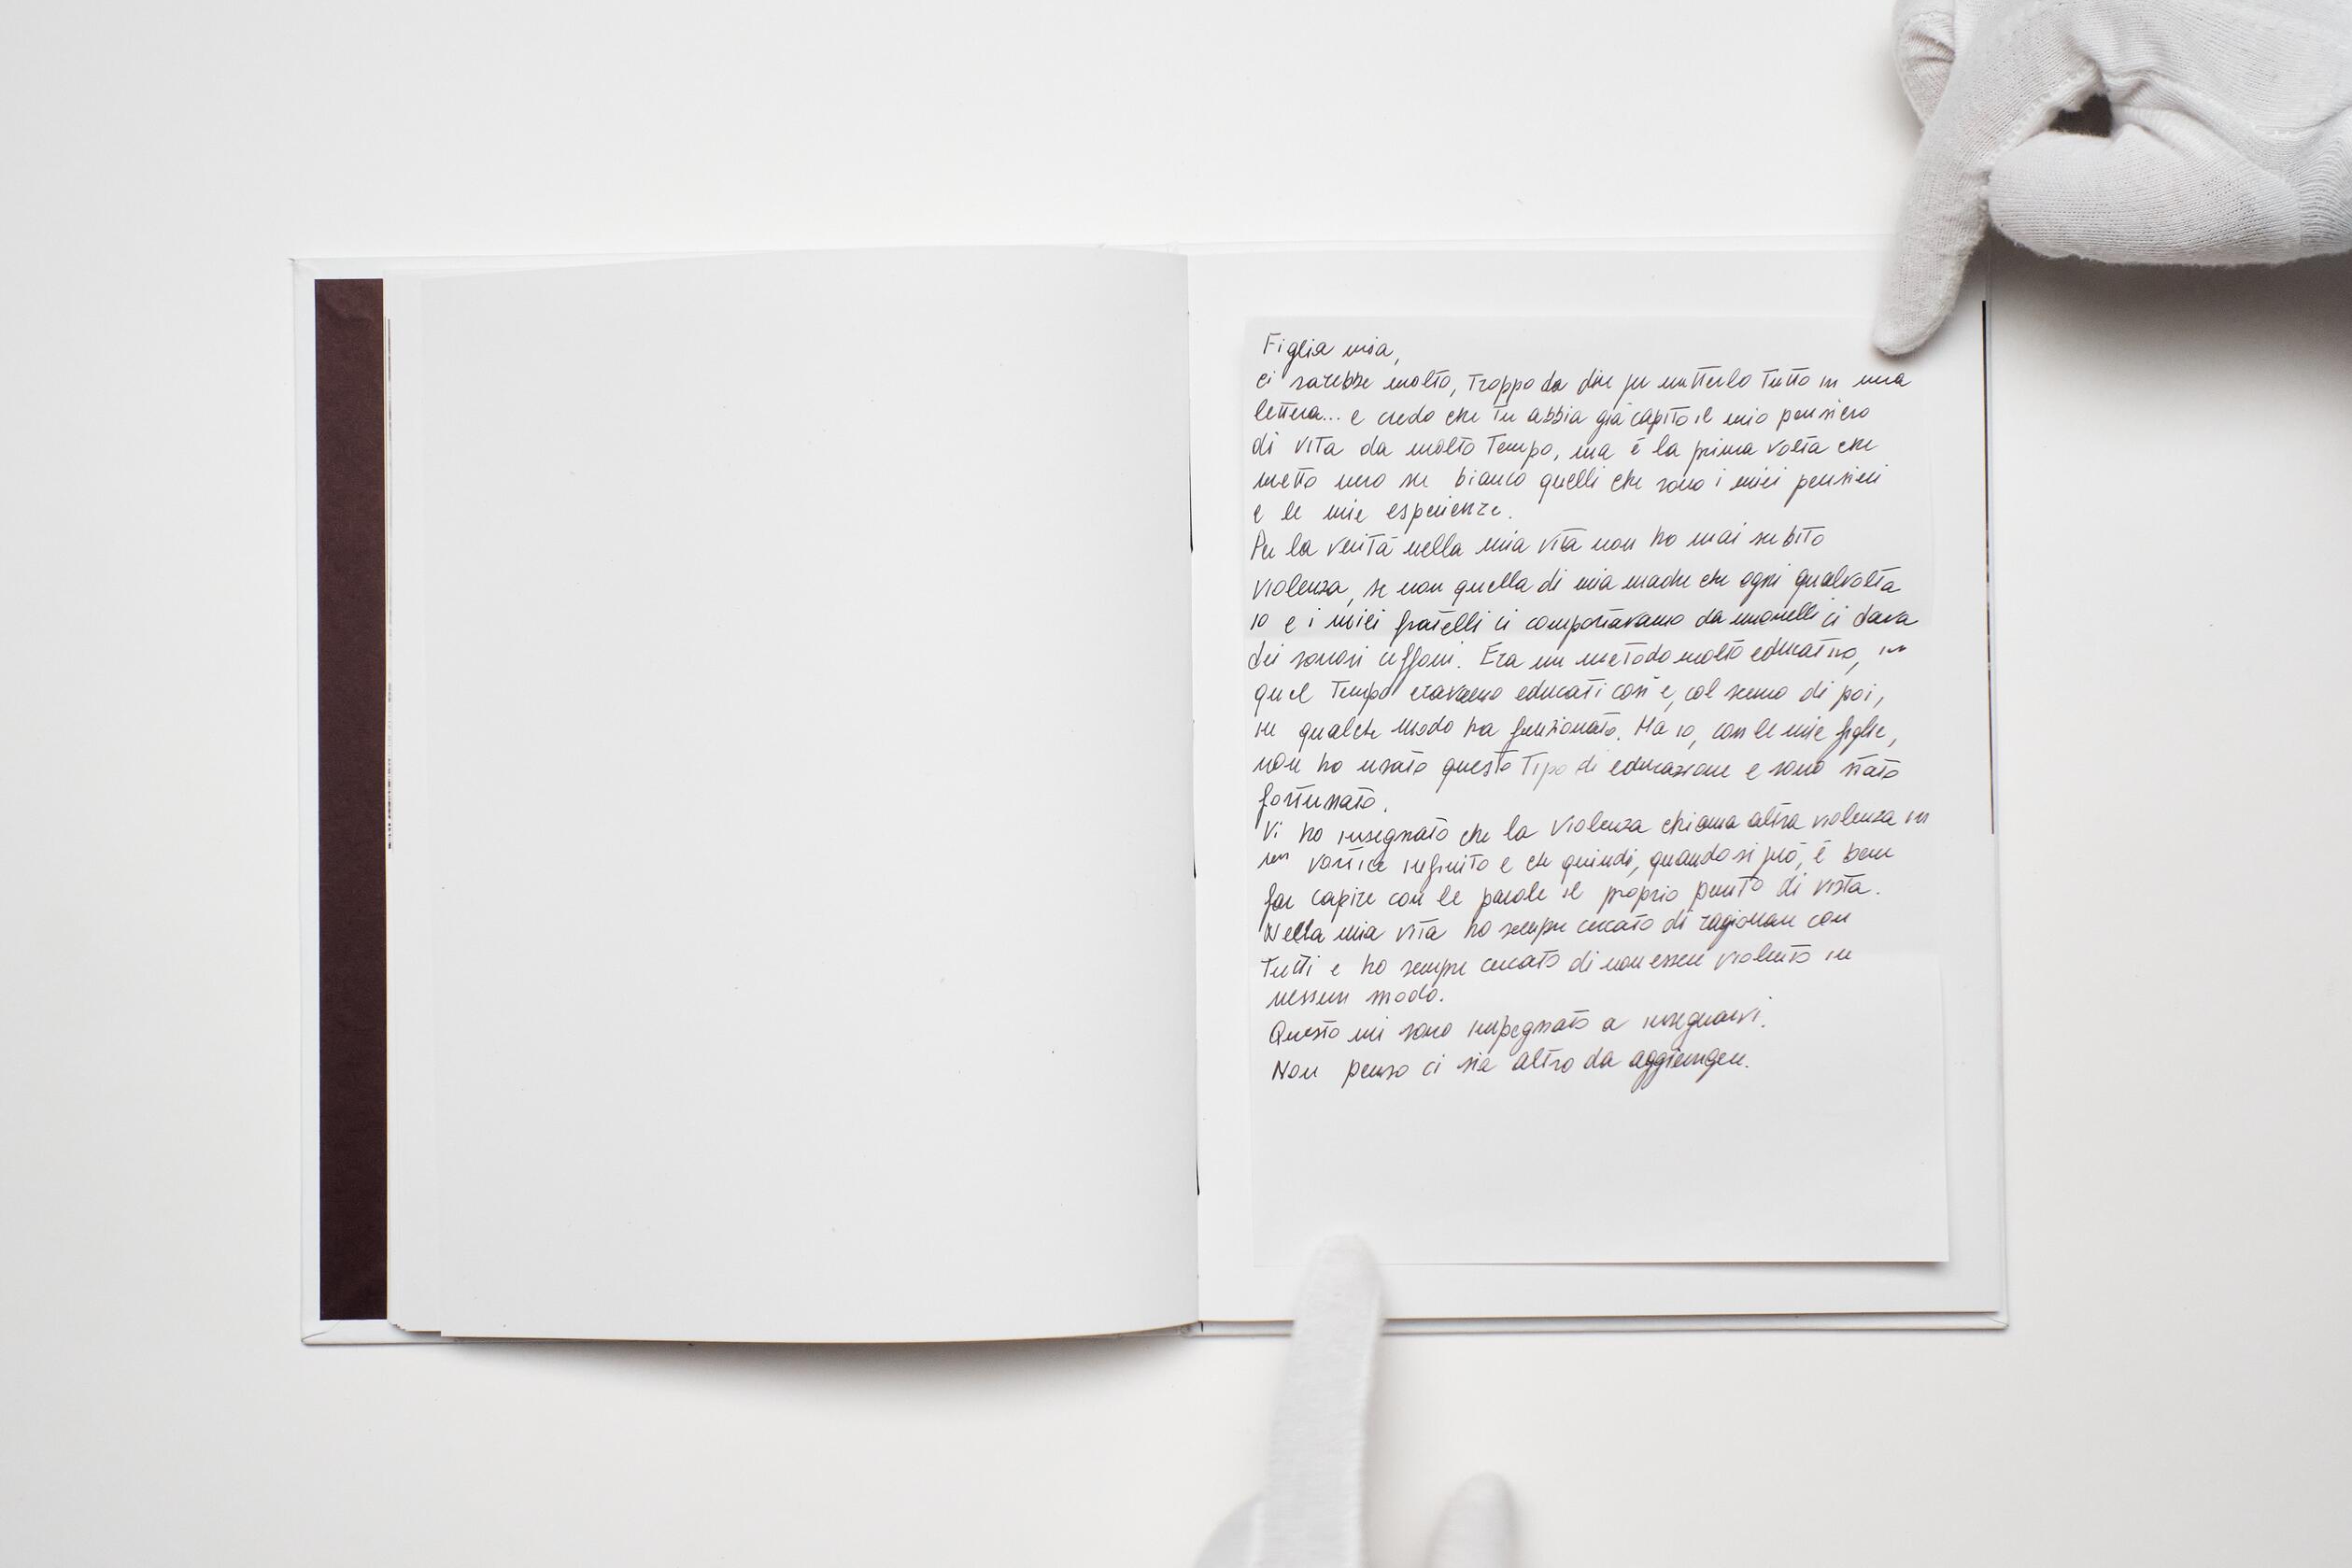 Figlia mia,
ci sarebbe molto, troppo da dire per metterlo tutto in una
lettera... e credo che tu abbia già capito il mio pensiero
di vita da molto tempo, ma è la prima volta che
metto nero su bianco quelli che sono i miei pensieri
e le mie esperienze.
Per la verità nella mia vita non ho mai subito
violenza, se non quella di mia madre che ogni qualvolta
io e i miei fratelli ci comportavamo da monelli ci dava
dei sonori ceffoni. Era un metodo molto educativo, in
quel tempo eravamo educati così e, col senno di poi,
in qualche modo ha funzionato. Ma io, con le mie figlie,
non ho usato questo tipo di educazione e sono stato
fortunato.
Vi ho insegnato che la violenza chiama altra violenza in
un vortice infinito e che quindi, quando si può, è bene
far capire con le parole il proprio punto di vista.
Nella mia vita ho sempre cercato di ragionare con
tutti e ho sempre cercato di non essere violento in
nessun modo.
Questo mi sono impegnato a insegnarvi.
Non penso ci sia altro da aggiungere.